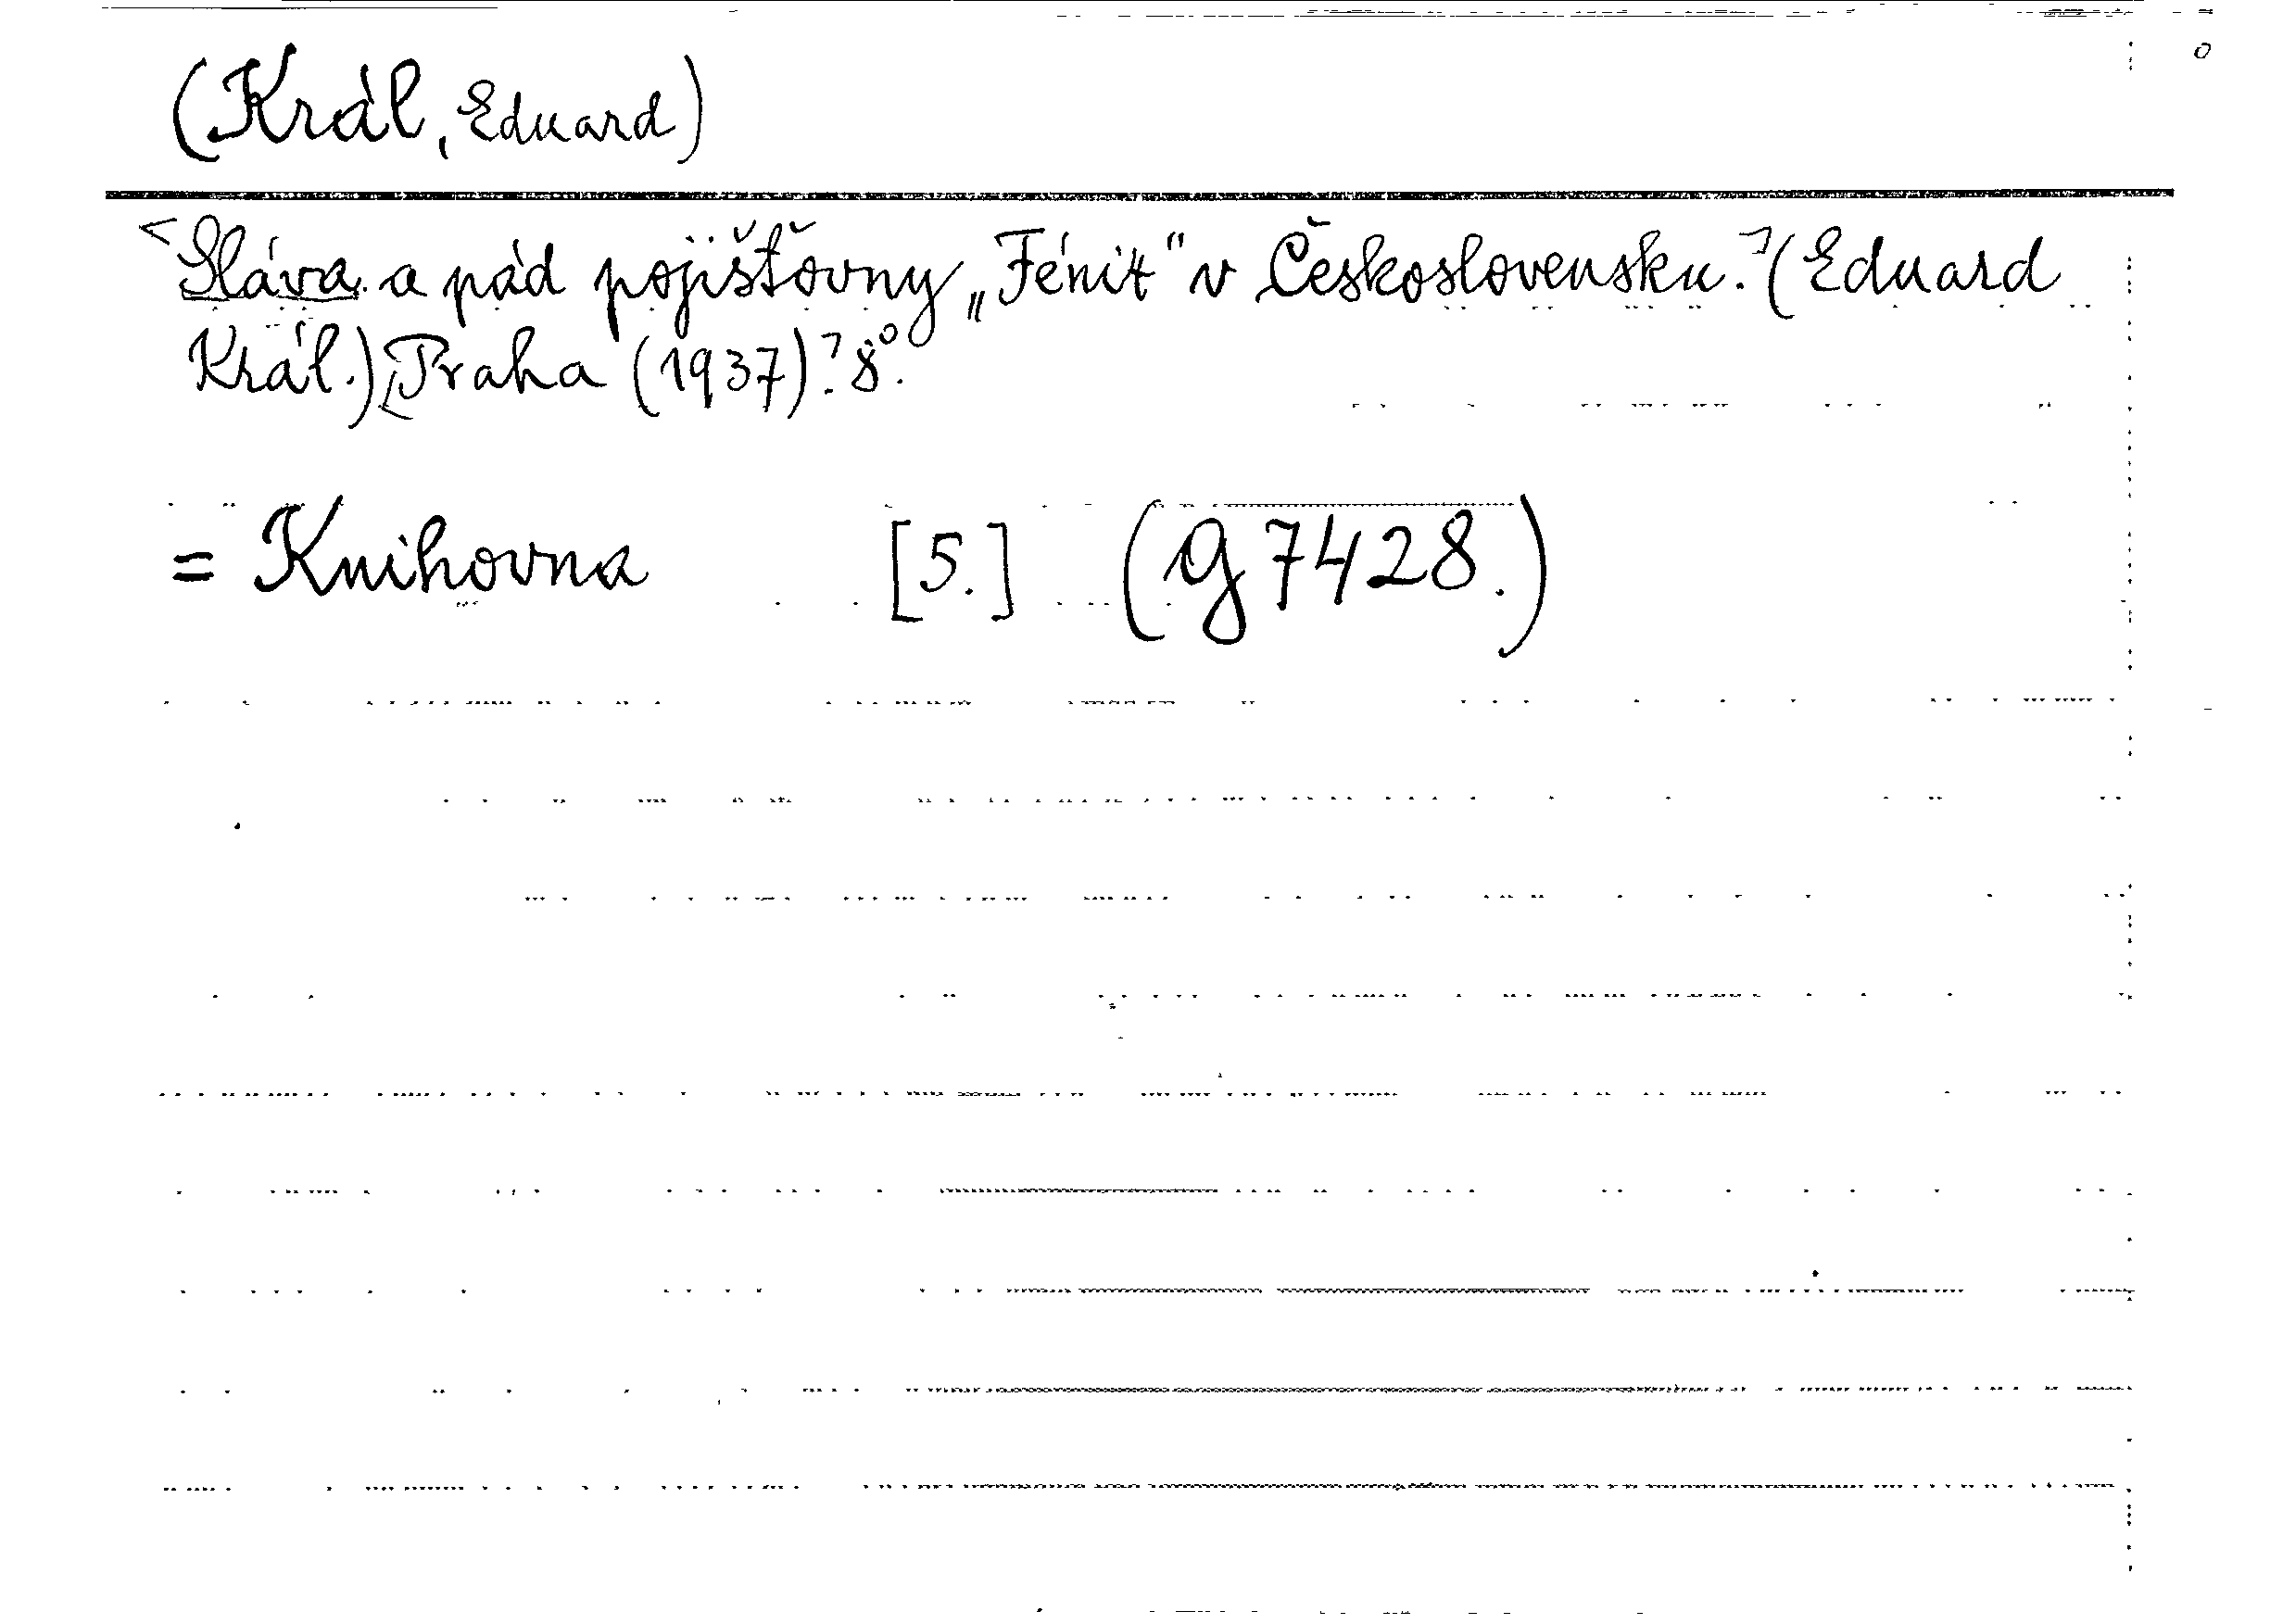 (Král, Eduard)
[Sláva a pád pojišťovny „Fénix" v Československu.] (Eduard
Král.) [Praha (1937)]. 8°.
= Knihovna [5.] (g 7428.)